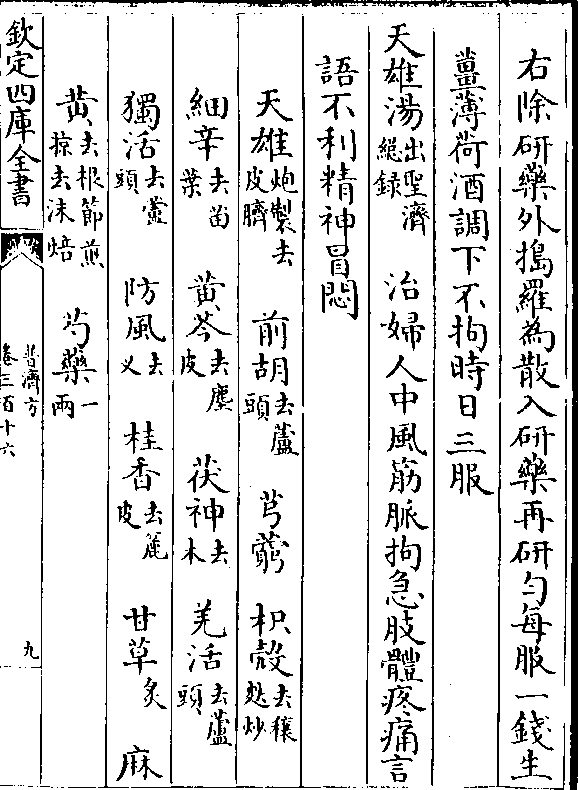 右除研藥外搗羅為散入研藥再研勻每服一錢生
薑薄荷酒調下不拘時日三服
天雄湯出聖濟總録 治婦人中風筋脈拘急肢體疼痛言
語不利精神冒悶
天雄炮製去皮臍 前胡去蘆頭 芎藭 枳殼去穰麩炒
細辛去苗葉 黄芩去塵皮 茯神去木 羌活去蘆頭
獨活去蘆頭 防風去乂 桂香去麄皮 甘草炙 麻
黄去根節煎掠去沫焙 芍藥一兩
欽定四庫全書
普濟方
卷三百十六
九